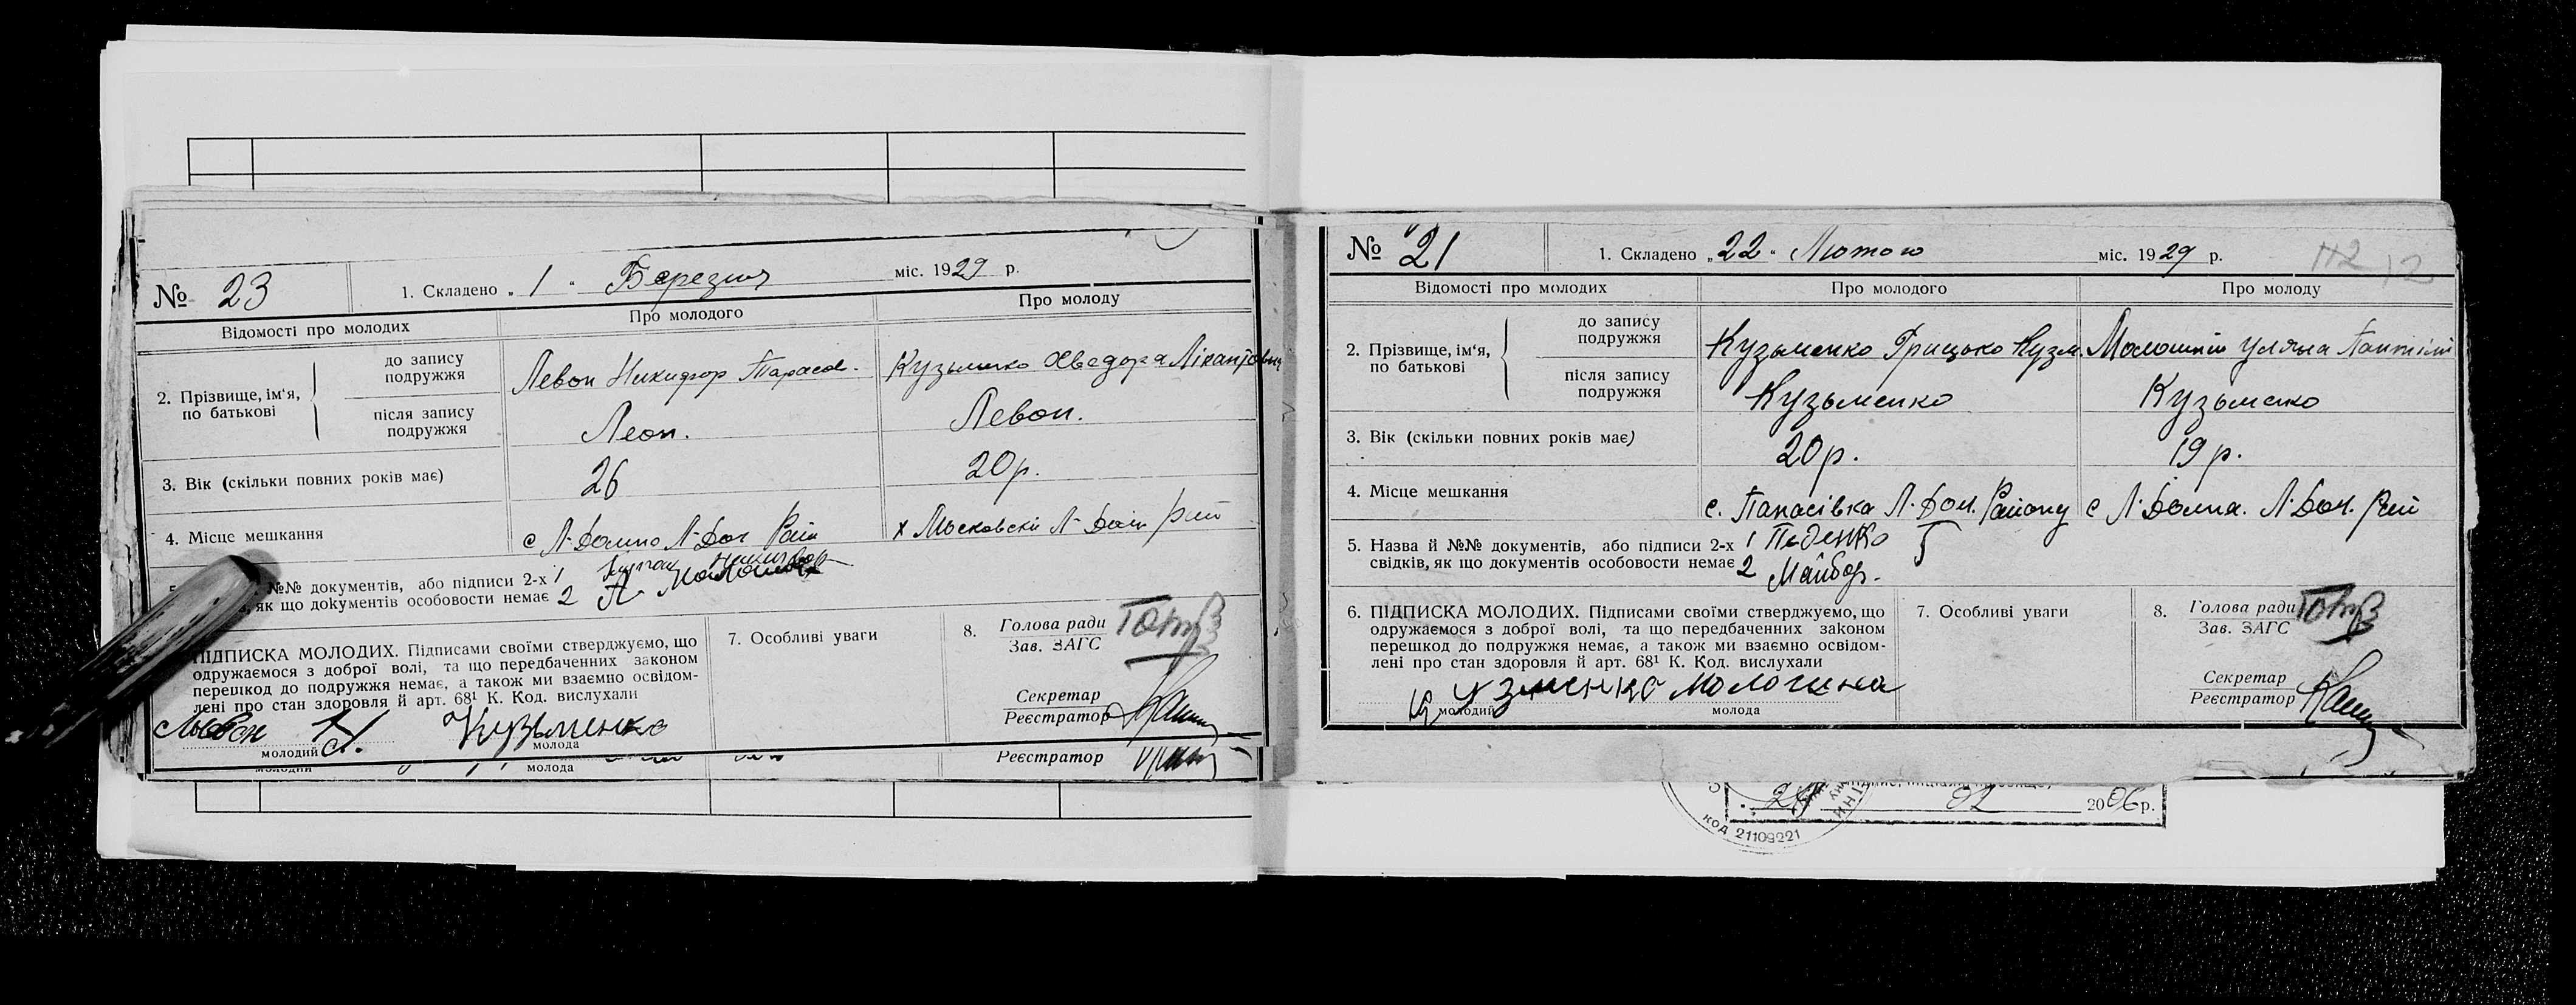 № 23
1. Складено „ 1 “ Березня міс. 1929 р.
Відомості про молодих
Про молодого
Про молоду
2. Прізвище, ім‘я, по батькові
до запису подружжя
Левон Никифор Тарасов.
Кузьменко Хведора
після запису подружжя
Леон.
Левон.
3. Вік (скільки повних років має)
26
20р.
4. Місце мешкання
с Л-Долино Л-Дол Рай
х Московскі Л-Дол рай
№№ документів, або підписи 2-х 1
як що документів особовости немає 2
ПІДПИСКА МОЛОДИХ. Підписами своїми стверджуємо, що
одружаємося з доброї волі, та що передбаченних законом
перешкод до подружжя немає, а також ми взаємно освідом-
лені про стан здоровля й арт. 68¹ К. Код. вислухали
Левон Кузьменко
молодий
молода
7. Особливі уваги
8. Голова ради
Зав. ЗАГС
Секретар
Реєстратор
молодий
молода
Реєстратор
№ 21
1. Складено „ 22 “ Лютого міс. 1929 р.
112 12
Відомості про молодих
Про молодого
Про молоду
2. Прізвище, ім‘я, по батькові
до запису подружжя
Кузьменко Грицько Кузм.
Уляна
після запису подружжя
Кузьменко
Кузьменко
3. Вік (скільки повних років має)
20р.
19р.
4. Місце мешкання
с. Панасівка Л. Дол. Району
с Л. Долина. Л. Дол. рай
5. Назва й №№ документів, або підписи 2-х 1 Педенко
свідків, як що документів особовости немає 2 Майбор.
6. ПІДПИСКА МОЛОДИХ. Підписами своїми стверджуємо, що
одружаємося з доброї волі, та що передбаченних законом
перешкод до подружжя немає, а також ми взаємно освідом-
лені про стан здоровля й арт. 68¹ К. Код. вислухали
молодий
молода
7. Особливі уваги
8. Голова ради
Зав. ЗАГС
Секретар
Реєстратор
02 2006р.
код 21109221